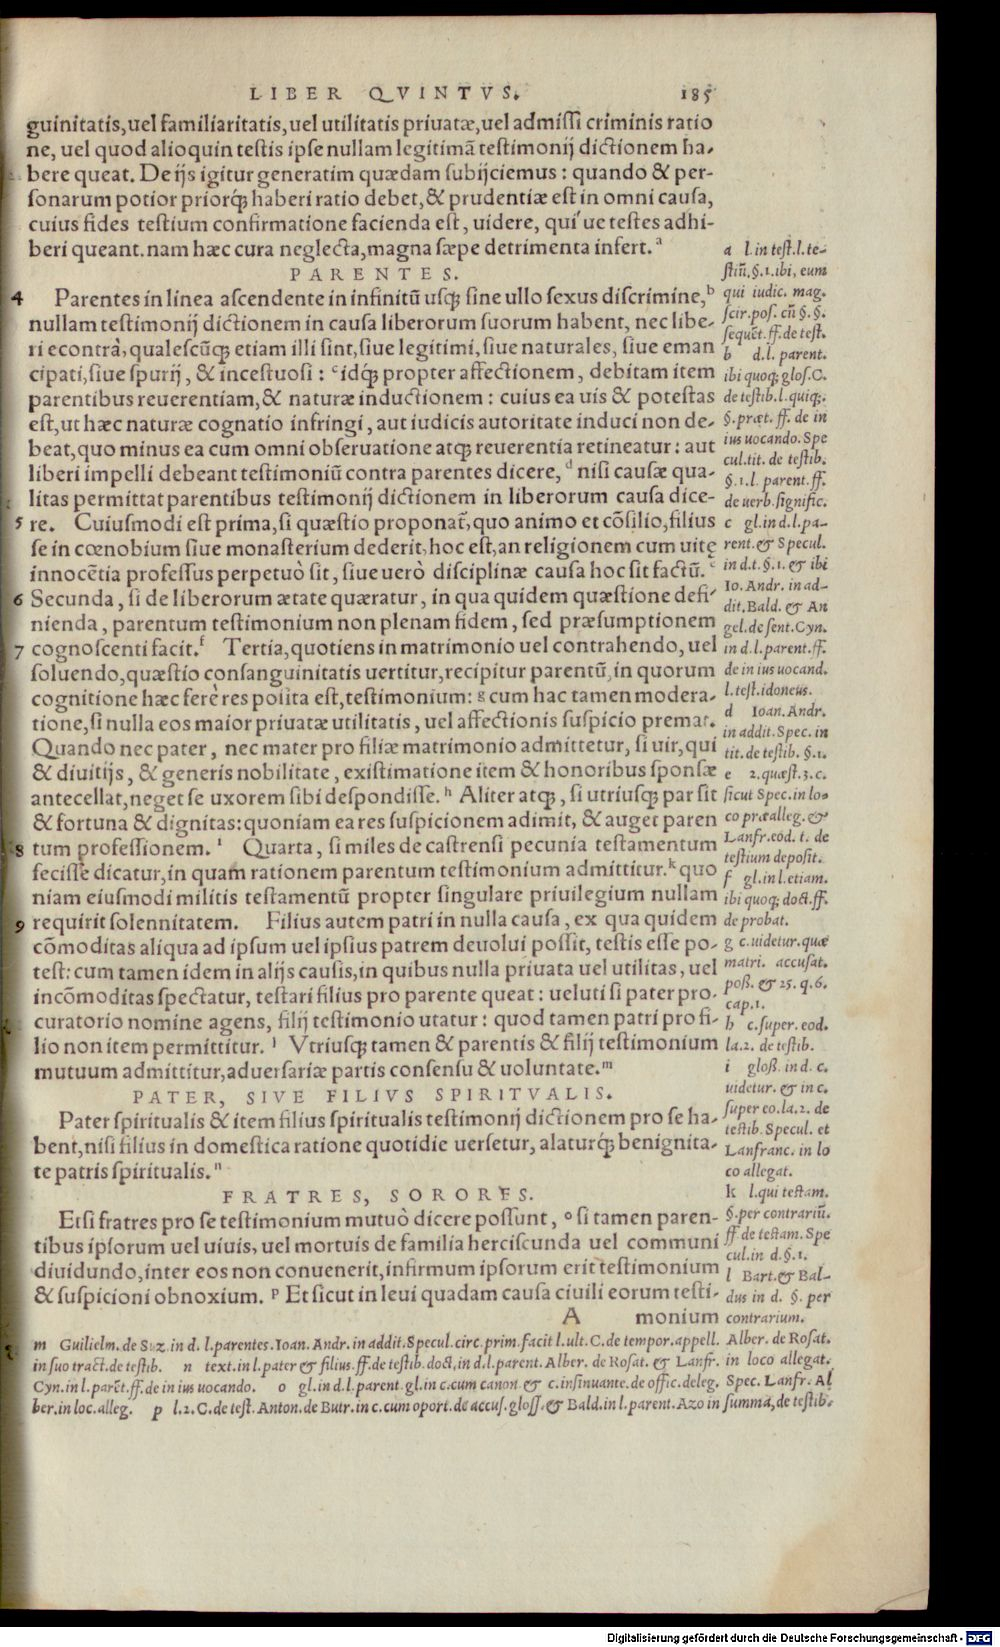 LIBER QVINTVS. 185
guinitatis, uel familiaritatis, uel utilitatis priuatæ, uel admissi criminis ratio
ne, uel quod alioquin testis ipse nullam legitimā testimonij dictionem ha-
bere queat. De ijs igitur generatim quædam subijciemus: quando & per-
sonarum potior priorq́; haberi ratio debet, & prudentiæ est in omni causa,
cuius fides testium confirmatione facienda est, uidere, qui´ue testes adhi-
beri queant. nam hæc cura neglecta, magna sæpe detrimenta infert. a
PARENTES.
4 Parentes in linea ascendente in infinitū usq; sine ullo sexus discrimine, b
nullam testimonij dictionem in causa liberorum suorum habent, nec libe-
ri econtrà, qualescūq; etiam illi sint, siue legitimi, siue naturales, siue eman
cipati, siue spurij, & incestuosi: c idq́; propter affectionem, debitam item
parentibus reuerentiam, & naturæ inductionem: cuius ea uis & potestas
est, ut hæc naturæ cognatio infringi, aut iudicis autoritate induci non de-
beat, quo minus ea cum omni obseruatione atq; reuerentia retineatur: aut
liberi impelli debeant testimoniū contra parentes dicere, d nisi causæ qua-
litas permittat parentibus testimonij dictionem in liberorum causa dice-
5 re. Cuiusmodi est prima, si quæstio proponat̃, quo animo et cōsilio, filius
se in cœnobium siue monasterium dederit, hoc est, an religionem cum uitę
innocētia professus perpetuò sit, siue uerò disciplinæ causa hoc sit factū. e
6 Secunda, si de liberorum ætate quæratur, in qua quidem quæstione defi-
nienda, parentum testimonium non plenam fidem, sed præsumptionem
7 cognoscenti facit. f Tertia, quotiens in matrimonio uel contrahendo, uel
soluendo, quæstio consanguinitatis uertitur, recipitur parentū, in quorum
cognitione hæc ferè res posita est, testimonium: g cum hac tamen modera-
tione, si nulla eos maior priuatæ utilitatis, uel affectionis suspicio premat.
Quando nec pater, nec mater pro filiæ matrimonio admittetur, si uir, qui
& diuitijs, & generis nobilitate, existimatione item & honoribus sponsæ
antecellat, neget se uxorem sibi despondisse. h Aliter atq;, si utriusq; par sit
& fortuna & dignitas: quoniam ea res suspicionem adimit, & auget paren
8 tum professionem. i Quarta, si miles de castrensi pecunia testamentum
fecisse dicatur, in quam rationem parentum testimonium admittitur. k quo
niam eiusmodi militis testamentū propter singulare priuilegium nullam
9 requirit solennitatem. Filius autem patri in nulla causa, ex qua quidem
cōmoditas aliqua ad ipsum uel ipsius patrem deuolui possit, testis esse po-
test: cum tamen idem in alijs causis, in quibus nulla priuata uel utilitas, uel
incōmoditas spectatur, testari filius pro parente queat: ueluti si pater pro-
curatorio nomine agens, filij testimonio utatur: quod tamen patri pro fi-
lio non item permittitur. l Vtriusq; tamen & parentis & filij testimonium
mutuum admittitur, aduersariæ partis consensu & uoluntate. m
PATER, SIVE FILIVS SPIRITVALIS.
Pater spiritualis & item filius spiritualis testimonij dictionem pro se ha-
bent, nisi filius in domestica ratione quotidie uersetur, alaturq́; benignita-
te patris spiritualis. n
FRATRES, SORORES.
Etsi fratres pro se testimonium mutuò dicere possunt, o si tamen paren-
tibus ipsorum uel uiuis, uel mortuis de familia herciscunda uel communi
diuidundo, inter eos non conuenerit, infirmum ipsorum erit testimonium
& suspicioni obnoxium. p Et sicut in leui quadam causa ciuili eorum testi-
A monium
a l. in test. l. te-
stiū. §. 1. ibi, eum
qui iudic. mag.
scir. pos. cū §. §.
sequēt. ff. de test.
b d. l. parent.
ibi quoq; glos. C.
de testib. l. quiq;.
§. præt. ff. de in
ius uocando. Spe
cul. tit. de testib.
§. 1. l. parent. ff.
de uerb. signific.
c gl. in d. l. pa-
rent. & Specul.
in d. t. §. 1. & ibi
Io. Andr. in ad-
dit. Bald. & An
gel. de sent. Cyn.
in d. l. parent. ff.
de in ius uocand.
l. test. idoneus.
d Ioan. Andr.
in addit. Spec. in
tit. de testib. §. 1.
e 2. quæst. 3. c.
sicut Spec. in lo-
co præalleg. &
Lanfr. eod. t. de
testium deposit.
f gl. in l. etiam.
ibi quoq; doct. ff.
de probat.
g c. uidetur. quæ
matri. accusat.
poß. & 25. q. 6.
cap. 1.
h c. super. eod.
la. 2. de testib.
i gloß. in d. c.
uidetur. & in c.
super eo. la. 2. de
testib. Specul. et
Lanfranc. in lo
co allegat.
k l. qui testam.
§. per contrariū.
ff. de testam. Spe
cul. in d. §. 1.
l Bart. & Bal-
dus in d. §. per
contrarium.
m Guilielm. de Suz. in d. l. parentes. Ioan. Andr. in addit. Specul. circ. prim. facit l. ult. C. de tempor. appell. Alber. de Rosat.
in suo tract. de testib. n text. in l. pater & filius. ff. de testib. doct. in d. l. parent. Alber. de Rosat. & Lanfr. in loco allegat.
Cyn. in l. parēt. ff. de in ius uocando. o gl. in d. l. parent. gl. in c. cum canon. & c. insinuante. de offic. deleg. Spec. Lanfr. Al
ber. in loc. alleg. p l. 2. C. de test. Anton. de Butr. in c. cum oport. de accus. gloss. & Bald. in l. parent. Azo in summa, de testib.
Digitalisierung gefördert durch die Deutsche Forschungsgemeinschaft - DFG